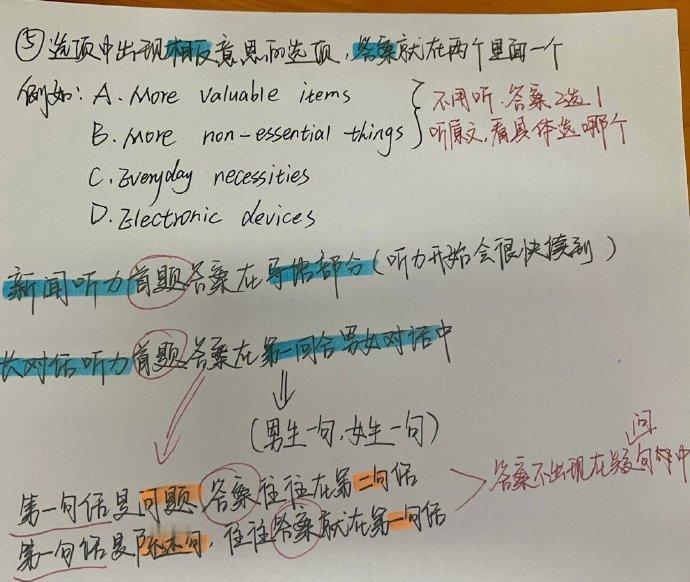 ⑤选项中出现相反意思的选项,答案就在两个里面一个
例如: A. More valuable items
B. More non-essential things
不用听.答案2选1
听原文,看具体选哪个
C. Everyday necessities
D. Electronic devices
新闻听力首题答案在导语部分(听力开始会很快读到)
长对话听力首题答案在第一回合男女对话中
(男生一句,女生一句)
第一句话是问题,答案往往在第二句话
第一句话是陈述句,往往答案就在第一句话
答案不出现在疑问句中